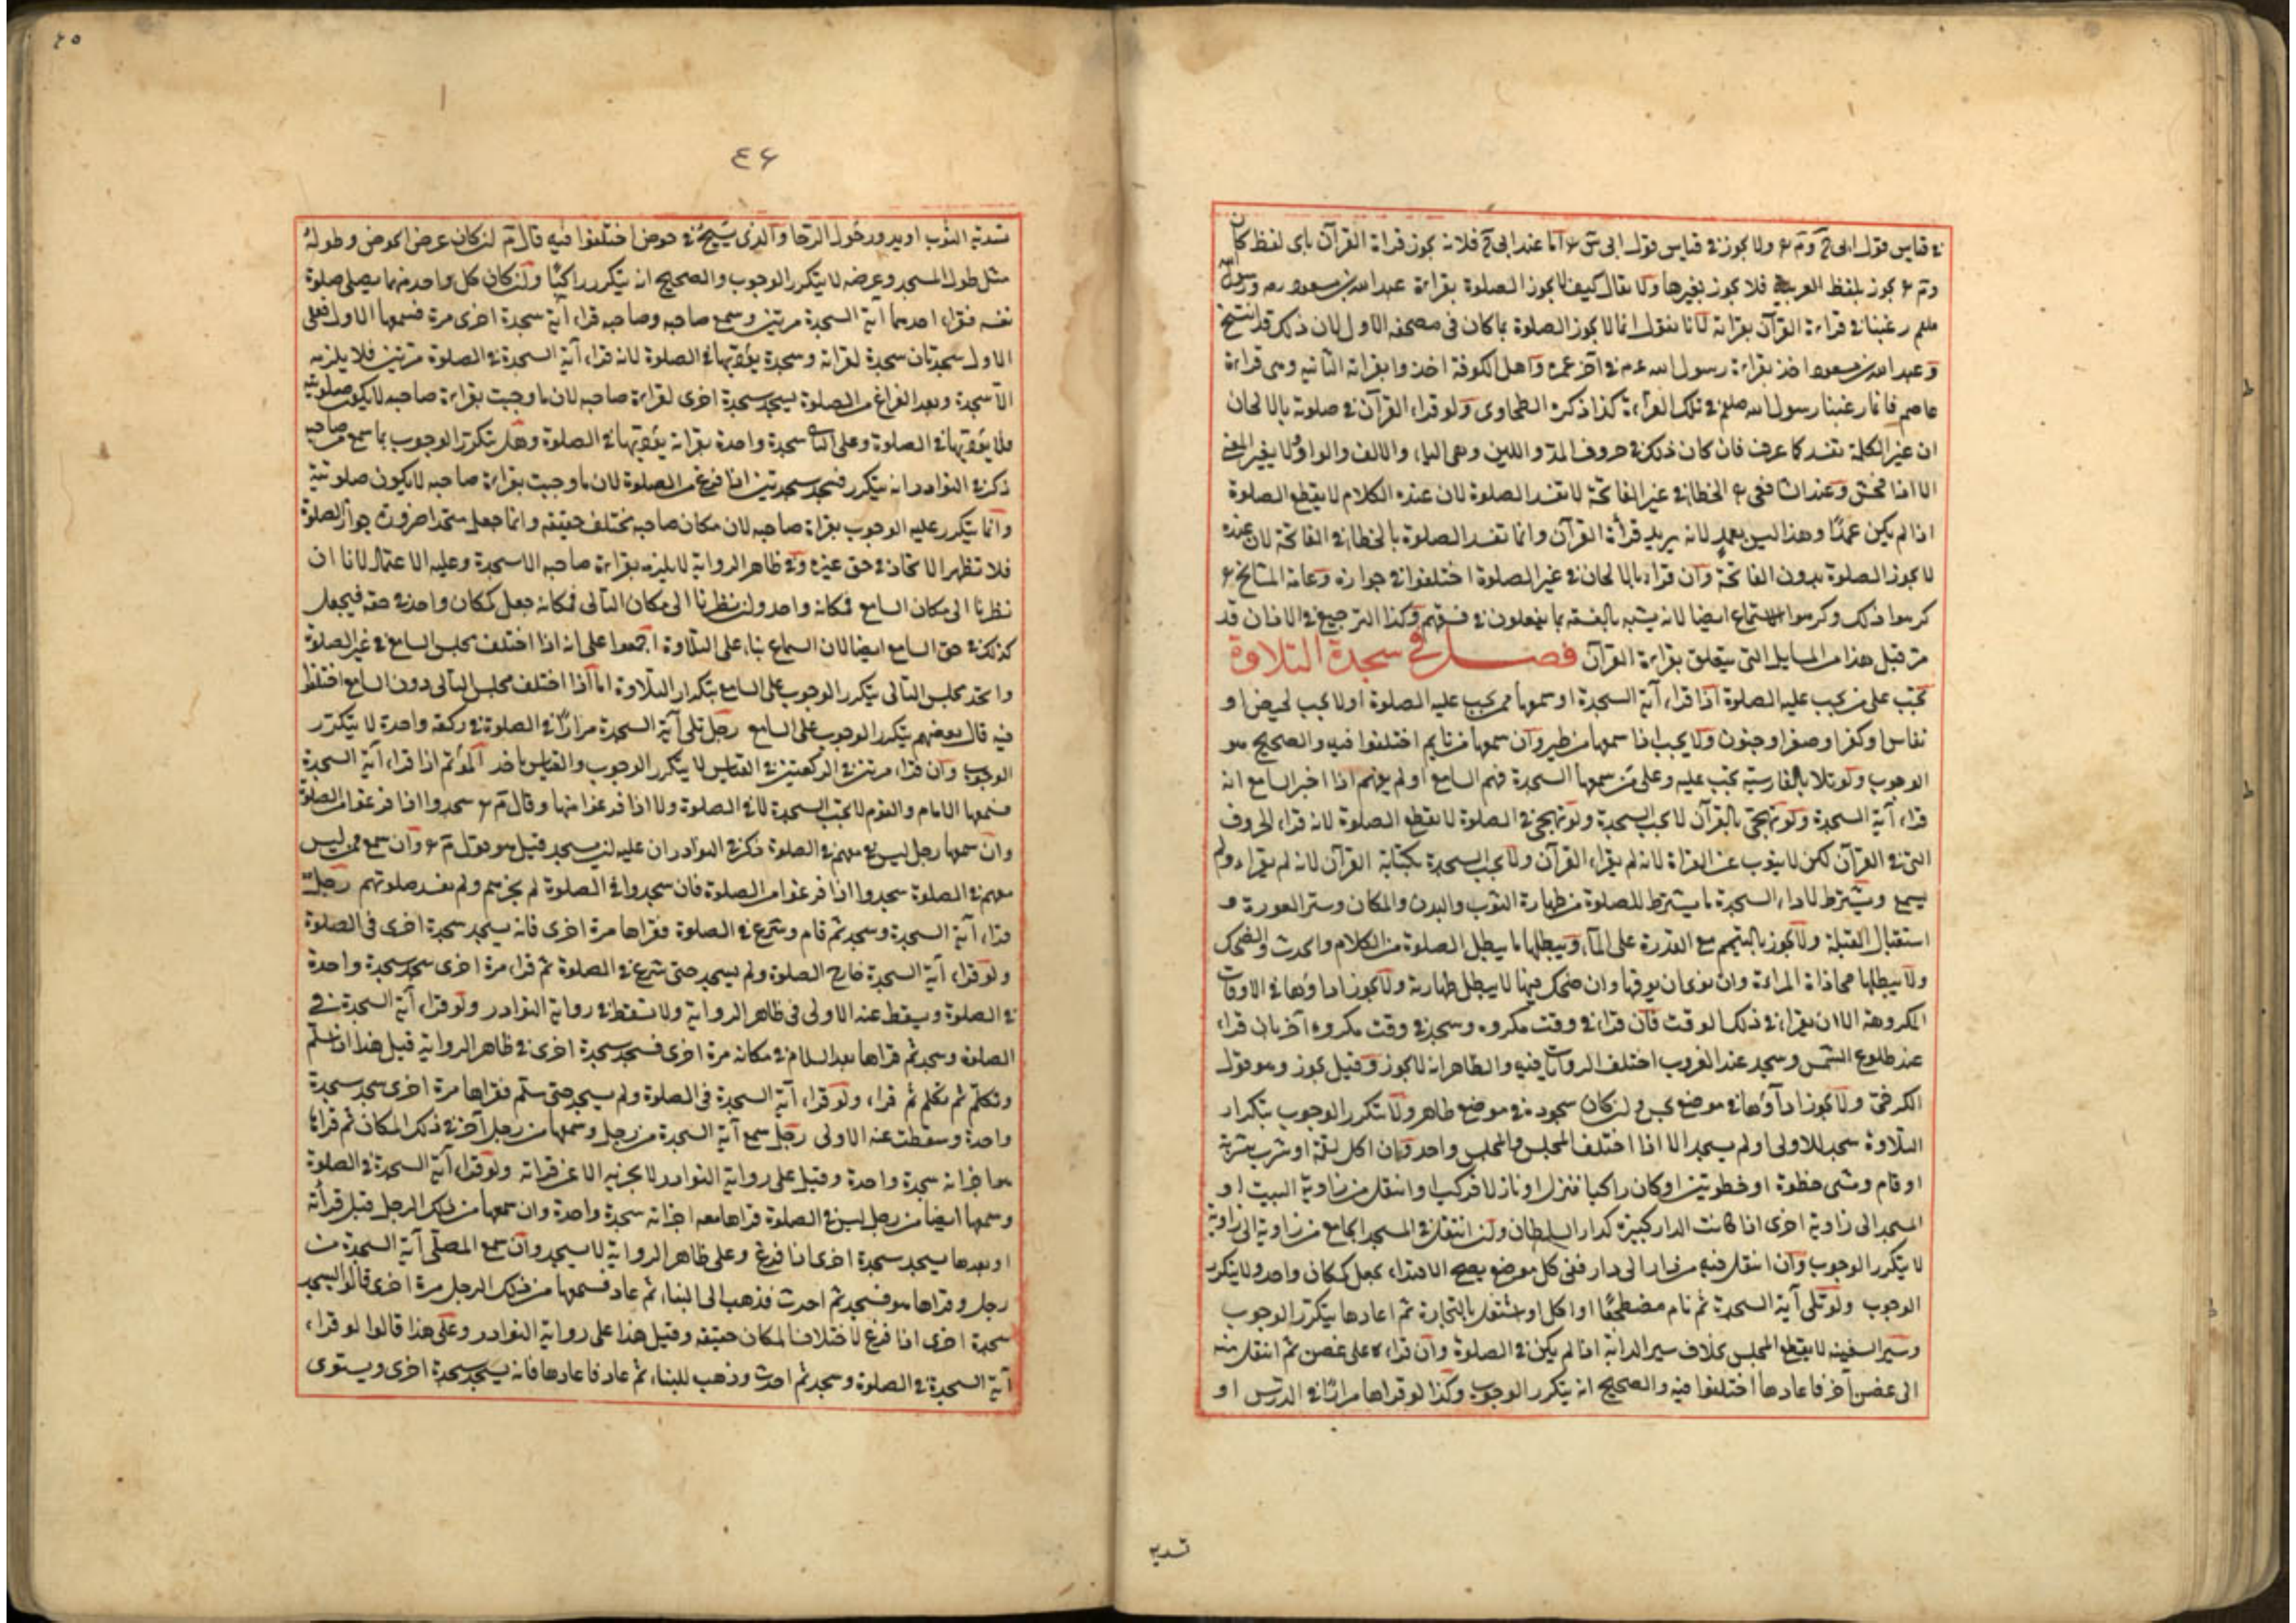 في قياس قول ابى ح وم ع ولا يجوز في قياس قول ابى س ع اما عند ابى ح فلانه يجوز قراة القرآن باى لفظ كان
وم ع يجوز بلفظ العربية فلا يجوز بغيرها ولا يقال كيف لا يجوز الصلوة بقراءة عبد الله بن مسعود رصه ورسول الله
صلعم رغبنا في قراءة القرآن بقراته لانا نقول انما لا يجوز الصلوة بما كان في مصحفه الاول لان ذلك قد انتسخ
وعبد الله بن مسعود اخذ بقراءة رسول الله عم في آخر عمره واهل الكوفة اخذوا بقراته الثانيه وهى قراءة
عاصم فانما رغبنا رسول الله صلعم في تلك القراءة كذا ذكره الطحاوى ولو قراء القرآن في صلوته بالالحان
ان غير الكلمة تفسد كما عرف فان كان ذلك في حروف المد واللين وهى الياء والالف والواو ولا يغير المعنى
الا اذا فحش وعند الشافعى ع الخطا في غير الفاتحة لا تفسد الصلوة لان عنده الكلام لا يقطع الصلوة
اذا لم يكن عمدًا وهذا ليس بعمد لانه يريد قرأة القرآن وانما تفسد الصلوة بالخطا في الفاتحة لان عنده
لا يجوز الصلوة بدون الفاتحة وان قراء بالالحان في غير الصلوة اختلفوا في جوازه وعامة المشايخ ع
كرهوا ذلك وكرهوا الاستماع ايضا لانه يشبه بالفسقه بما يفعلون في فسقهم وكذا الترجيع في الاذان قد
مر قبل هذا من المسايل التى يتعلق بقراءة القرآن فصل في سجدة التلاوة
تجب على من يجب عليه الصلوة اذا قراء آية السجدة او سمعها ممن يجب عليه الصلوة او لا يجب لحيض او
نفاس او كفر او صغر او جنون ولا يجب اذا سمعها من طير وان سمعها من نايم اختلفوا فيه والصحيح هو
الوجوب ولو تلا بالفارسية تجب عليه وعلى من سمعها السجدة فهم السامع او لم يفهم اذا اخبر السامع انه
قراء آية السجدة ولو تهجى بالقرآن لا يجب السجدة ولو تهجى في الصلوة لا يقطع الصلوة لانه قراء الحروف
التى في القرآن لكن لا ينوب عن القراة لانه لم يقراء القرآن ولا يجب السجدة بكتابة القرآن لانه لم يقراء ولم
يسمع ويشترط لاداء السجدة ما يشترط للصلوة من طهارة الثوب والبدن والمكان وستر العورة و
استقبال القبلة ولا يجوز بالتيمم مع القدرة على الماء ويبطلها ما يبطل الصلوة من الكلام والحدث والضحك
ولا يبطلها محاذاة المراءة وان نوى ان يوقها وان ضحك فيها لا يبطل طهارته ولا يجوز اداؤها في الاوقات
المكروهة الا ان يقراء في ذلك الوقت فان قراء في وقت مكروه وسجد في وقت مكروه آخر بان قراء
عند طلوع الشمس وسجد عند الغروب اختلف الروايات فيه والظاهر انه لا يجوز وقيل يجوز وهو قول
الكرخى ولا يجوز اداؤها في موضع نجس ولن كان سجوده في موضع طاهر ولا يتكرر الوجوب بتكرار
التلاوة سجد للاولى او لم يسجد الا اذا اختلف المجلس والمجلس واحد وان اكل لقمة او شرب شربة
او قام ومشى خطوة او خطوتين او كان راكبا فنزل او نازلا فركب او انتقل من زاوية البيت او
المسجد الى زاوية اخرى اذا كانت الدار كبيرة كدار السلطان ولن انتقل في المسجد الجامع من زاوية الى زاوية
لا يتكرر الوجوب وان انتقل فيه من دار الى دار ففى كل موضع يصح الاقتداء يجعل كمكان واحد ولا يتكرر
الوجوب ولو تلى آية السجدة ثم نام مضطجعًا او اكل او اشتغل بالتجارة ثم اعادها يتكرر الوجوب
وسير السفينه لا يقطع المجلس بخلاف سير الدابة اذا لم يكن في الصلوة وان قراءه على غصن ثم انتقل منه
الى غصن آخر فاعادها اختلفوا فيه والصحيح انه يتكرر الوجوب وكذا لو قراها مرارًا في الدرس او
تسديه
٤٥
٤٦
تسدية الثوب او يدور حول الرحا والذى يسبح في حوض اختلفوا فيه قال م لن كان عرض الحوض وطوله
مثل طول المسجد وعرضه لا يتكرر الوجوب والصحيح انه يتكرر راكبًا ولن كان كل واحد منهما يصلى صلوة
نفسه فقراء احدهما آية السجدة مرتين وسمع صاحبه وصاحبه قراء آية سجدة اخرى مرة فسمعها الاول فعلى
الاول سجدتان سجدة لقراته وسجدة يؤديها في الصلوة لانه قراء آية السجدة في الصلوة مرتين فلا يلزمه
الا سجدة وبعد الفراغ من الصلوة يسجد سجدة اخرى لقراءة صاحبه لان ما وجبت بقراءة صاحبه لا يكون صلوتية
فلا يؤديها في الصلوة وعلى الثانى سجدة واحدة بقراته يؤديها في الصلوة وهل يتكرر الوجوب بما سمع من صاحبه
ذكر في النوادر انه يتكرر فيسجد سجدتين اذا فرغ من الصلوة لان ما وجبت بقراءة صاحبه لا يكون صلوتية
وانما يتكرر عليه الوجوب بقراة صاحبه لان مكان صاحبه يختلف حقيقه وانما جعل متحدا ضرورة جواز الصلوة
فلا تظهر الاتحاد في حق غيره وفي ظاهر الرواية لا يلزمه بقراءة صاحبه الا سجدة وعليه الاعتماد لانا ان
نظرنا الى مكان السامع فمكانه واحد ولن نظرنا الى مكان التالى فمكانه جعل كمكان واحد في حقه فيجعل
كذلك في حق السامع ايضا لان السماع بناء على التلاوة اجمعوا على انه اذا اختلف مجلس السامع في غير الصلوة
واتحد مجلس التالى يتكرر الوجوب على السامع بتكرار التلاوة اما اذا اختلف مجلس التالى دون السامع اختلفوا
فيه قال بعضهم يتكرر الوجوب على السامع رجل تلى آية السجدة مرارًا في الصلوة في ركعة واحدة لا يتكرر
الوجوب وان قراء مرتين في الركعتين في القياس لا يتكرر الوجوب والقياس ناخذ المؤتم اذا قراء آية السجدة
فسمعها الامام والقوم لا يجب السجدة لا في الصلوة ولا اذا فرغوا منها وقال م ع سجدوا اذا فرغوا من الصلوة
وان سمعها رجل ليس معهم في الصلوة ذكر في النوادر ان عليه لن يسجد قيل هو قول م ع وان سمع ممن ليس
معهم في الصلوة سجدوا اذا فرغوا من الصلوة فان سجدوا في الصلوة لم يجزهم ولم تفسد صلوتهم رجل
قراء آية السجدة وسجد ثم قام وشرع في الصلوة فقراها مرة اخرى فانه يسجد سجدة اخرى في الصلوة
ولو قراء آية السجدة خارج الصلوة ولم يسجد حتى شرع في الصلوة ثم قراء مرة اخرى سجد سجدة واحدة
في الصلوة ويسقط عنه الاولى في ظاهر الرواية ولا تسقط في رواية النوادر ولو قراء آية السجدة في
الصلوة وسجد ثم قراها بعد السلام في مكانه مرة اخرى فسجد سجدة اخرى في ظاهر الرواية قيل هذا اذا سلم
وتكلم ثم قراء ولو قراء آية السجدة في الصلوة ولم يسجد حتى سلم فقراها مرة اخرى سجد سجدة
واحدة وسقطت عنه الاولى رجل سمع آية السجدة من رجل وسمعها من رجل آخر في ذلك المكان ثم قراها
هو اجزاته سجدة واحدة وقيل على رواية النوادر لا يجزيه الا عن قراته ولو قراء آية السجدة في الصلوة
وسمعها ايضا من رجل ليس في الصلوة قراها معه اجزاته سجدة واحدة وان سمعها من ذلك الرجل قبل قرأته
او بعدها يسجد سجدة اخرى اذا فرغ وعلى ظاهر الرواية لا يسجد وان سمع المصلى آية السجدة من
رجل وقراها هو فسجد ثم احدث فذهب الى البناء ثم عاد فسمعها من ذلك الرجل مرة اخرى قالوا يسجد
سجدة اخرى اذا فرغ لاختلاف المكان حقيقه وقيل هذا على رواية النوادر وعلى هذا قالوا لو قراء
آية السجدة في الصلوة وسجد ثم احدث وذهب للبناء ثم عاد فاعادها فانه يسجد سجدة اخرى ويستوى